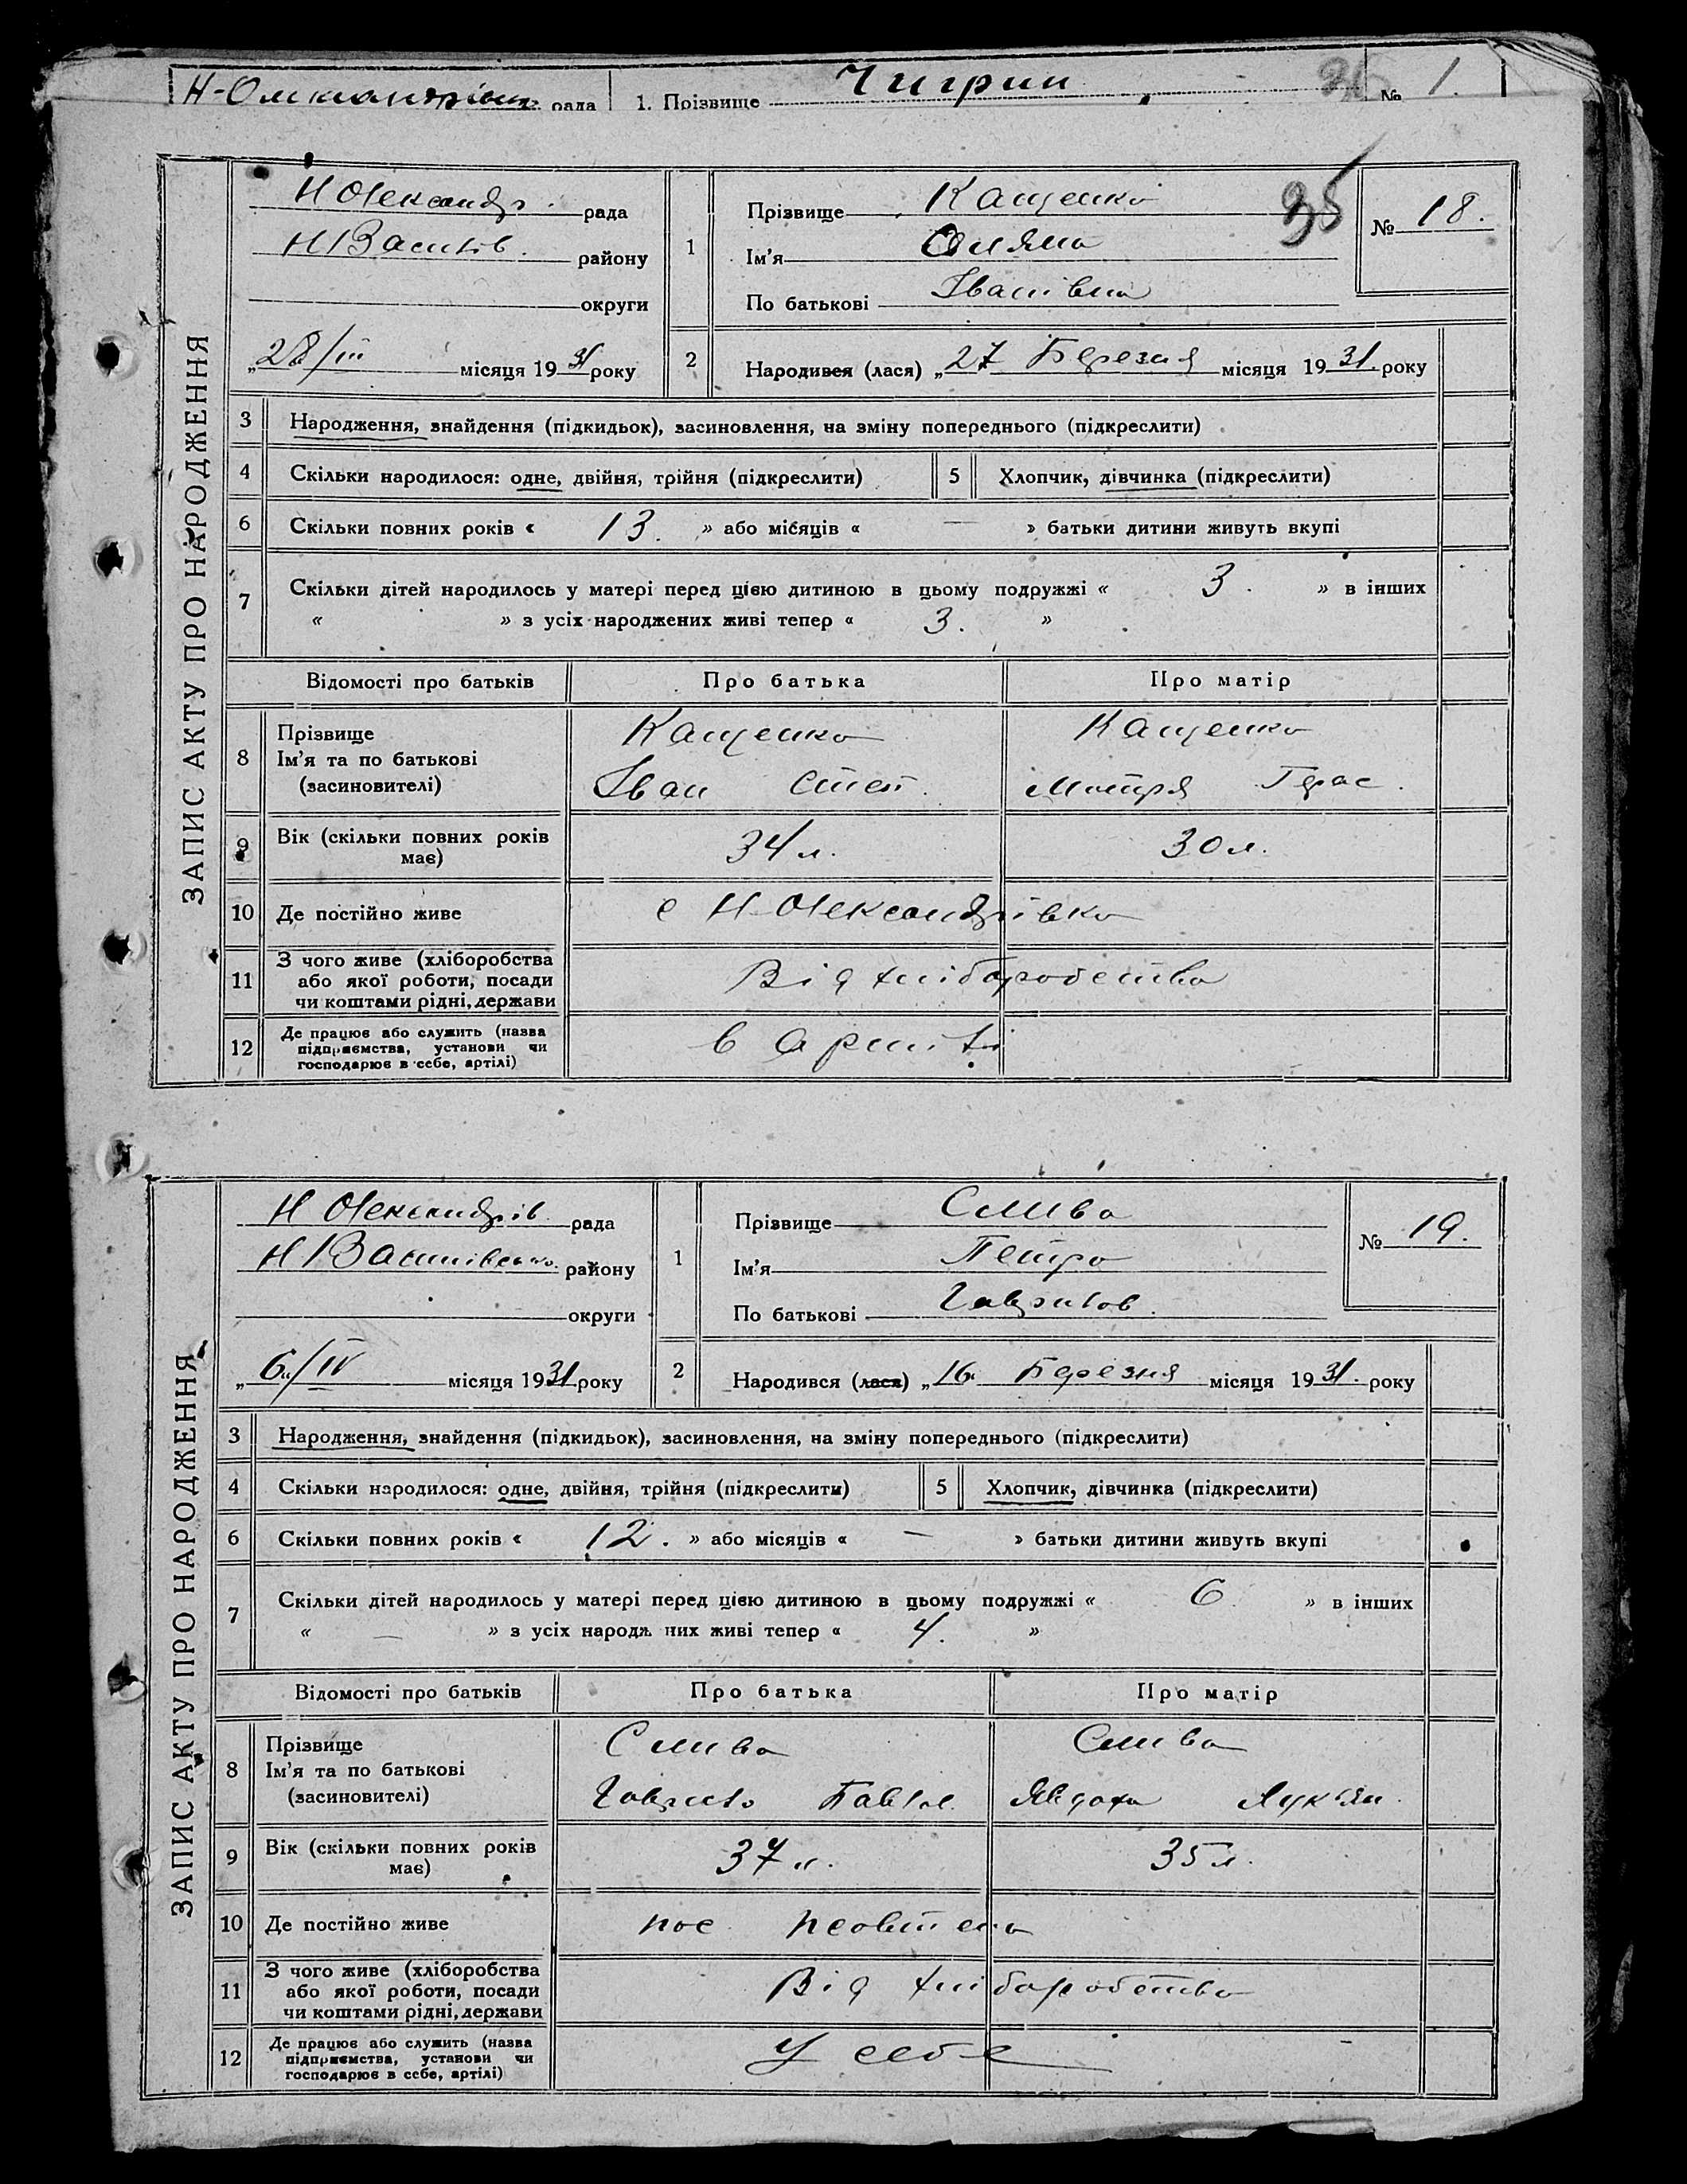 рада 1. Прізвище Чигрин № 1.
35
ЗАПИС АКТУ ПРО НАРОДЖЕННЯ
Н Олександр. рада
Н Василів. району
округи
„28/III місяця 1931 року
1 Прізвище Кащенко
Ім'я Оляна
По батькові Іванівна
№ 18.
2 Народився (лася) „27 Березня місяця 1931. року
3 Народження, знайдення (підкидьок), засиновлення, на зміну попереднього (підкреслити)
4 Скільки народилося: одне, двійня, трійня (підкреслити) 5 Хлопчик, дівчинка (підкреслити)
6 Скільки повних років « 13. » або місяців « — » батьки дитини живуть вкупі
7 Скільки дітей народилось у матері перед цією дитиною в цьому подружжі « 3. » в інших
« » з усіх народжених живі тепер « 3. »
Відомості про батьків Про батька Про матір
8 Прізвище Кащенко Кащенко
Ім'я та по батькові
(засиновителі) Іван Степ. Мотря Герас.
9 Вік (скільки повних років має) 34 л. 30 л.
10 Де постійно живе с Н-Олександрівка
11 З чого живе (хліборобства
або якої роботи, посади
чи коштами рідні, держави Від хліборобства
12 Де працює або служить (назва
підприємства, установи чи
господарює в себе, артілі) в артілі
ЗАПИС АКТУ ПРО НАРОДЖЕННЯ
Н Олександрів рада
Н Василівсько. району
округи
„6/IV місяця 1931 року
1 Прізвище Слива
Ім'я Петро
По батькові Гаврилов.
№ 19.
2 Народився (лася) „16. Березня місяця 1931. року
3 Народження, знайдення (підкидьок), засиновлення, на зміну попереднього (підкреслити)
4 Скільки народилося: одне, двійня, трійня (підкреслити) 5 Хлопчик, дівчинка (підкреслити)
6 Скільки повних років « 12. » або місяців « — » батьки дитини живуть вкупі
7 Скільки дітей народилось у матері перед цією дитиною в цьому подружжі « 6 » в інших
« — » з усіх народж них живі тепер « 4. »
Відомості про батьків Про батька Про матір
8 Прізвище Слива Слива
Ім'я та по батькові
(засиновителі) Гаврило Павлов. Явдоха Лук'ян.
9 Вік (скільки повних років має) 37 л. 35 л.
10 Де постійно живе пос.
11 З чого живе (хліборобства
або якої роботи, посади
чи коштами рідні, держави Від хліборобства
12 Де працює або служить (назва
підприємства, установи чи
господарює в себе, артілі) У себе